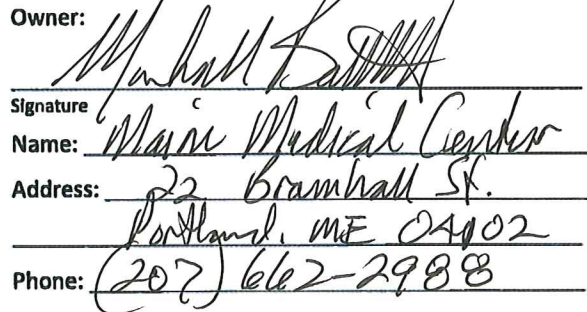 Owner:
Signature
Name: Maine Medical Center
Address: 22 Bramhall St.
Portland, ME 04102
Phone: (207) 662-2988